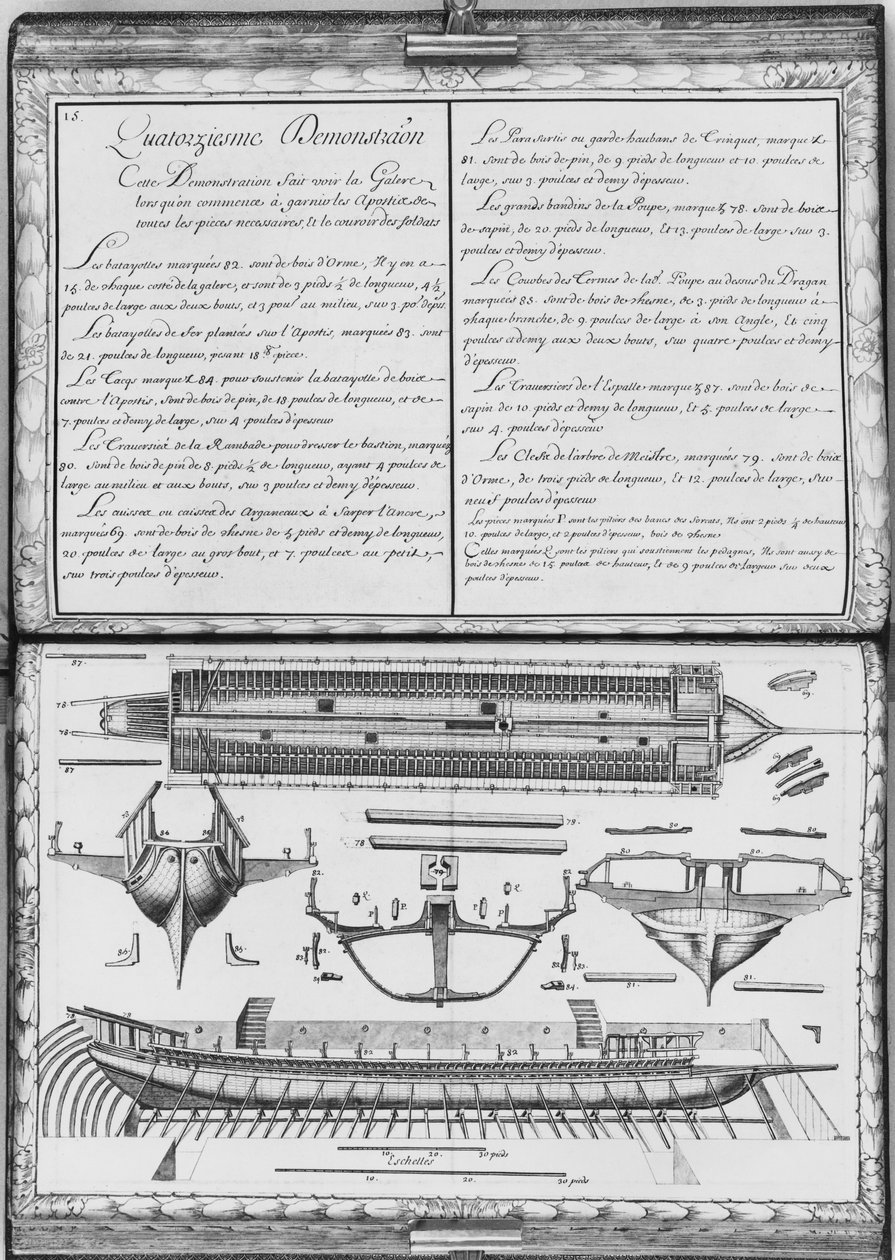 15.
Quatorziesme Demonstra͠on
Cette Demonstration fait voir la Galere
lors qu'on commence à garnir les Apostis de
toutes les pieces necessaires, Et le couroir des soldats
Les batayolles marquées 82. sont de bois d'Orme, Il y en a
15. de chaque costé de la galere, et sont de 3 pieds ½ de longueur, 4 ½
poulces de large aux deux bouts, et 3 poul. au milieu, sur 3. po.
Les batayolles de fer plantées sur l'Apostis, marquées 83. sont
de 21. poulces de longueur, pesant 18 piece.
Les Tacqs marquez 84. pour soustenir la batayolle de bois
contre l'Apostis, sont de bois de pin, de 18 poulces de longueur, et de
7. poulces et demy de large, sur 4 poulces d'épesseur
Les Traversies de la Rambade pour dresser le bastion, marquez
80. sont de bois de pin de 8. pieds ½ de longueur, ayant 4 poulces de
large au milieu et aux bouts, sur 3 poulces et demy d'épesseur.
Les cuisses ou caisses des Arganeaux à sarper l'Ancre,
marqués 69. sont de bois de chesne de 5 pieds et demy de longueur,
20. poulces de large au gros bout, et 7. poulces au petit,
sur trois poulces d'épesseur.
Les Parasartis ou garde haubans de Trinquet, marquez
81. sont de bois de pin, de 9 pieds de longueur et 10. poulces de
large, sur 3. poulces et demy d'épesseur.
Les grands bandins de la Poupe, marquez 78. sont de bois
de sapin, de 20. pieds de longueur, Et 13. poulces de large sur 3.
poulces et demy d'épesseur.
Les Courbes des Termes de lad. Poupe au dessus du Dragan
marquées 88. sont de bois de chesne, de 3. pieds de longueur à
chaque branche, de 9. poulces de large à son Angle, Et cinq
poulces et demy aux deux bouts, sur quatre poulces et demy
d'épesseur.
Les Traversiers de l'Espalle marquez 87. sont de bois de
sapin de 10. pieds et demy de longueur, Et 5. poulces de large
sur 4. poulces d'épesseur
Les Clefs de l'arbre de Meistre, marquées 79. sont de bois
d'Orme, de trois pieds de longueur, Et 12. poulces de large, sur
neuf poulces d'épesseur
Les pieces marquées P. sont les piliers des bancs des forcats, Ils ont 2 pieds ¼ de hauteur
10. poulces de large, et 2 poulces d'épesseur, bois de chesne
Celles marquées L sont les piliers qui soustiennent les pedagnes, Ils sont aussy de
bois de chesne de 15 poulces de hauteur, Et de 9 poulces de largeur sur deux
poulces d'épesseur.
87.
78.
78.
87
69.
69
78.
78
79.
80
80.
80
80.
82.
82.
P.
P.
P
P
83
82
82
83.
84
84.
81.
81.
82
82
10. 20. 30 pieds
Eschelles
10. 20. 30 pieds